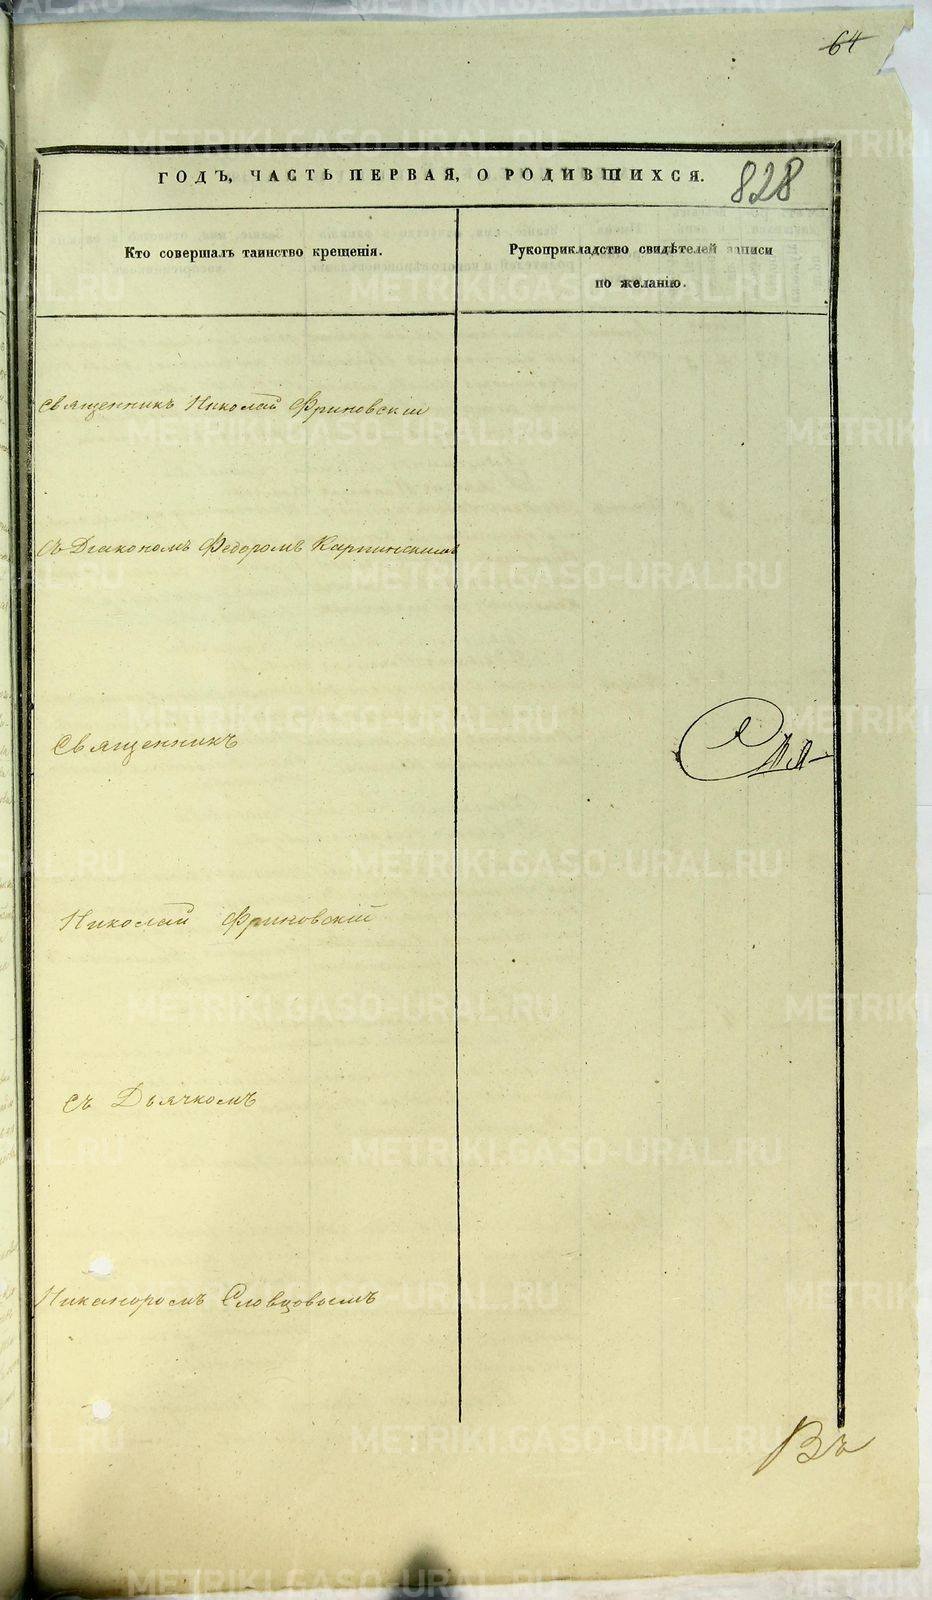 64
ГОДЪ, ЧАСТЬ ПЕРВАЯ, О РОДИВШИХСЯ.
828
Кто совершалъ таинство крещенія.
Рукоприкладство свидѣтелей записи
по желанію.
Священникъ Николай Фриновскій
Съ Діакономъ Федоромъ Карпинскимъ
Священникъ
Николай Фриновскій
съ Дьячкомъ
Никаноромъ Словцовымъ
Въ
METRIKI.GASO-URAL.RU